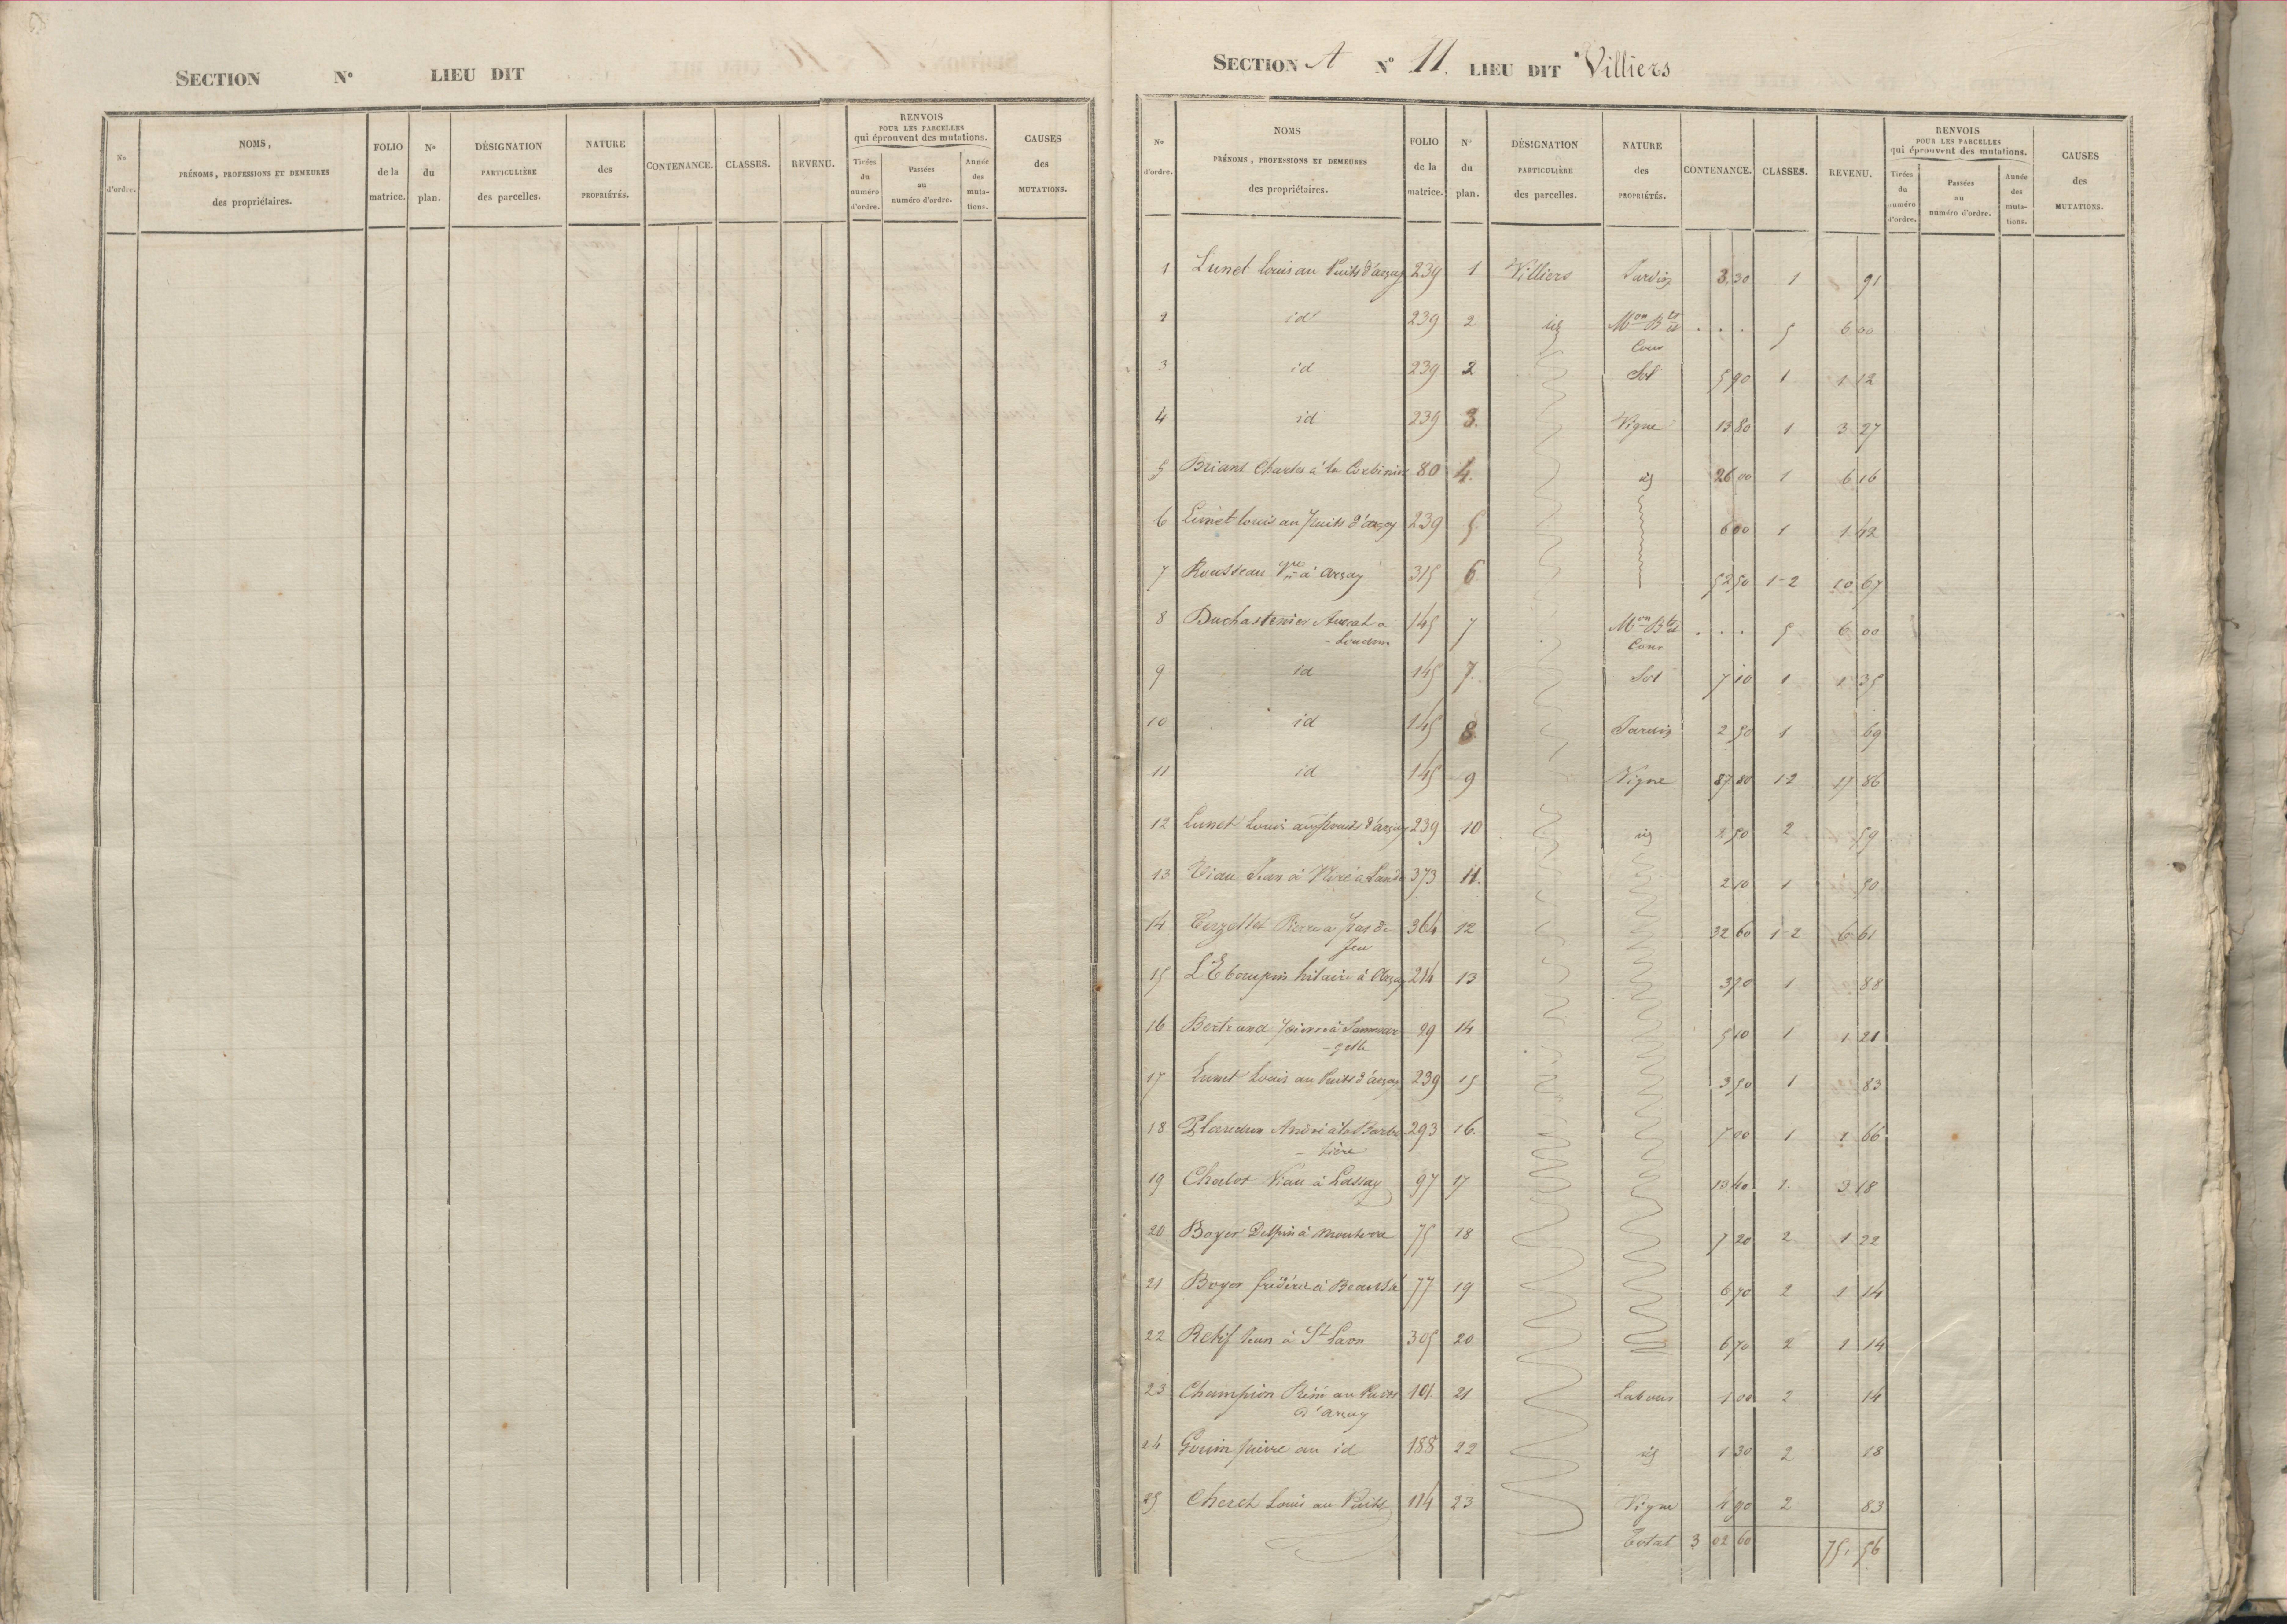 SECTION N° LIEU DIT
N° d'ordre.
NOMS,
PRÉNOMS, PROFESSIONS ET DEMEURES
des propriétaires.
FOLIO de la matrice.
N° du plan.
DÉSIGNATION PARTICULIÈRE des parcelles.
NATURE des PROPRIÉTÉS.
CONTENANCE.
CLASSES.
REVENU.
RENVOIS
POUR LES PARCELLES
qui éprouvent des mutations.
Tirées du numéro d'ordre.
Passées au numéro d'ordre.
Année des muta-tions.
CAUSES des MUTATIONS.
SECTION A N° 11. LIEU DIT Villiers
N° d'ordre.
NOMS
PRÉNOMS, PROFESSIONS ET DEMEURES
des propriétaires.
FOLIO de la matrice.
N° du plan.
DÉSIGNATION PARTICULIÈRE des parcelles.
NATURE des PROPRIÉTÉS.
CONTENANCE.
CLASSES.
REVENU.
RENVOIS
POUR LES PARCELLES
qui éprouvent des mutations.
Tirées du numéro d'ordre.
Passées au numéro d'ordre.
Année des muta-tions.
CAUSES des MUTATIONS.
1 Lunet Louis au Puits d'arçay 239 1 Villiers Jardin 3 30 1 91
2 id 239 2 id Mon Bts et Cour . . . 5 6 00
3 id 239 2 Sol 5 90 1 1 12
4 id 239 3. Vigne 13 80 1 3 27
5 Briant Charles à la 80 4. id 26 00 1 6 16
6 Lunet louis au puits d'arçay 239 5 6 00 1 1 42
7 Rousseau à Arçay 315 6 52 50 1-2 10 67
8 Duchastenier Avocat a
- Loudun 145 7 Mon Bts et Cour . . . 5 6 00
9 id 145 7. Sol 7 10 1 1 35
10 id 145 8. Jardin 2 50 1 69
11 id 145 9 Vigne 87 80 1-2 17 86
12 Lunet Louis au puits d'arçay 239 10 id 2 50 2 59
13 Viau Jean à Lande 373 11. 2 10 1 50
14 Pierre a pas de
Jeu 364 12 32 60 1-2 6 61
15 L'Ebaupin hilaire à Arçay 214 13 3 70 1 88
16 Bertrand pierre à 29 14 5 10 1 1 21
17 Lunet Louis au Puits d'arçay 239 15 3 50 1 83
18 André à la Barbe
- tière 293 16. 7 00 1 1 66
19 Viau à Lassay 97 17 13 40 1. 3 18
20 Boyer Delphin à Mouterre 75 18 7 20 2 1 22
21 Boyer frédéric à 77 19 6 70 2 1 14
22 Retif Jean à St Laon 305 20 6 70 2 1 14
23 Champion au Puits
d'arçay 101 21 Labour 1 00 2 14
24 pierre au id 188 22 id 1 30 2 18
25 Louis au Puits 114 23 Vigne 4 90 2 83
Total 3 02 60 75. 56